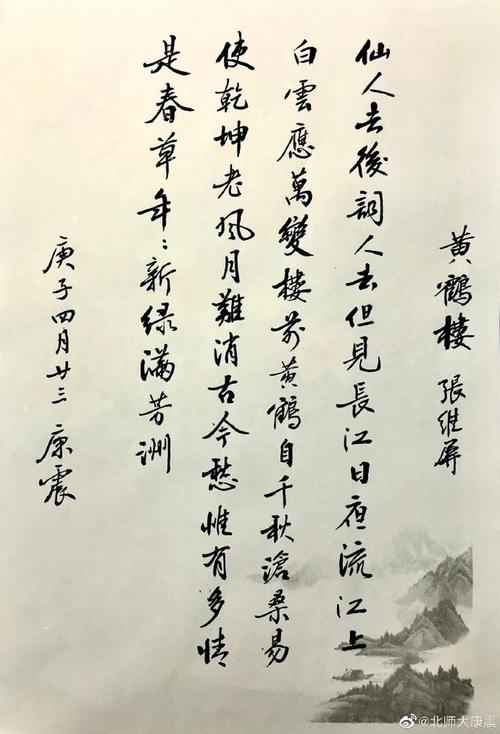 黄鶴樓 張維屏
仙人去後詞人去但見長江日夜流江上
白雲應萬變樓前黄鶴自千秋滄桑易
使乾坤老風月難消古今愁惟有多情
是春草年〻新緑滿芳洲
庚子四月廿三 康震
@北师大康震